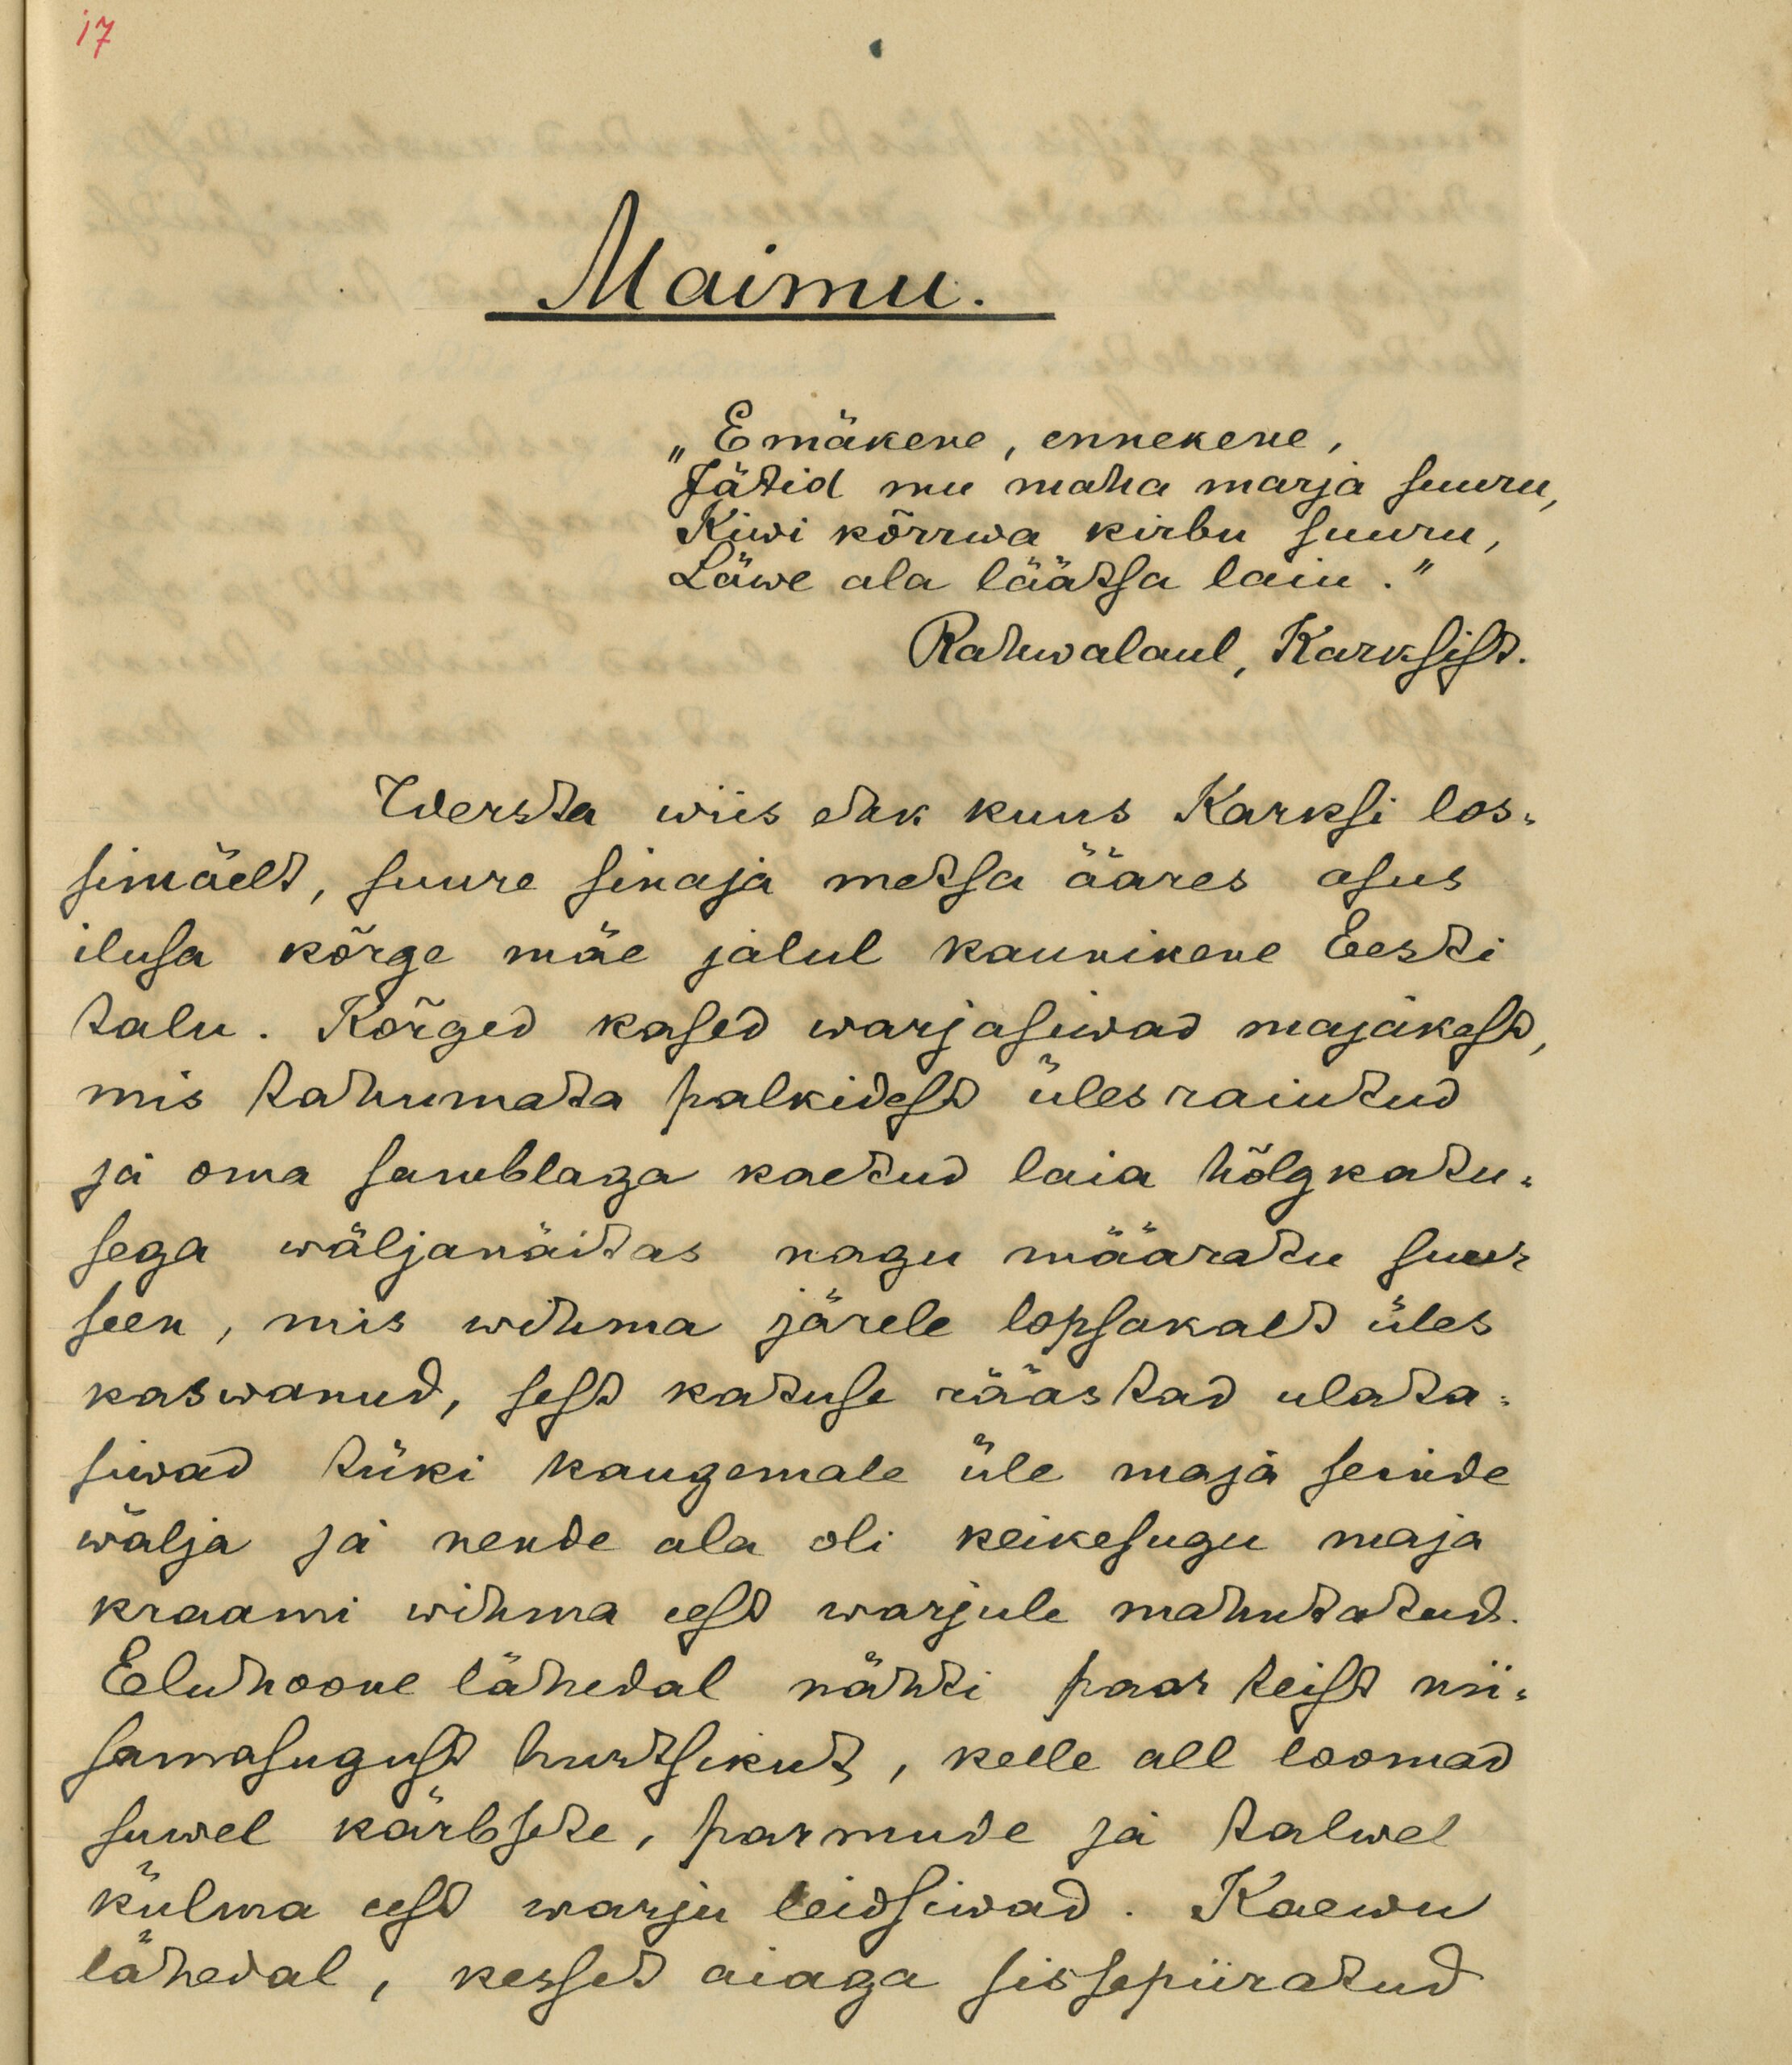 17
Maimu.
„Emäkene, ennekene,
Jätid mu maha marja suuru,
Kiwi kõrrwa kirbu suuru,
Läwe ala läätsa laiu."
Rahwalaul, Karksist.
Wersta wiis ehk kuus Karksi los-
simäelt, suure sinaja metsa ääres asus
ilusa kõrge mäe jalul kaunikene Eesti
talu. Kõrged kased warjasiwad majakest,
mis tahumata palkidest ülesraiutud
ja oma samblaga kaetud laia hõlgkatu-
sega wäljanäitas nagu määratu suur
seen, mis wihma järele lopsakalt üles
kaswanud, sest katuse räästad ulata-
siwad tüki kaugemale üle maja seinde
wälja ja nende ala oli keikesugu maja
kraami wihma eest warjule mahutatud.
Eluhoone lähedal nähti paar teist nii-
samasugust hurtsikut, kelle all loomad
suwel kärbsete, parmude ja talwel
külma eest warju leidsiwad. Kaewu
lähedal, kesset aiaga sissepiiratud